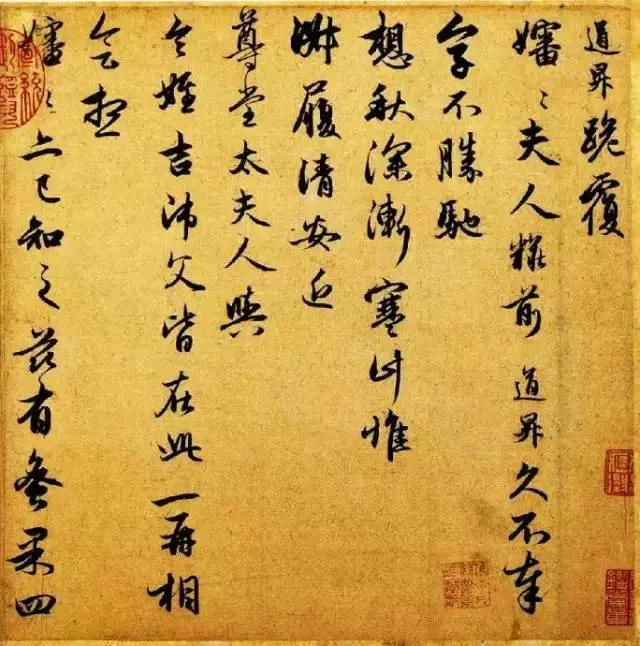 道昇跪覆
嬸〻夫人粧前道昇久不奉
字不勝馳
想秋深漸寒計惟
淑履清安近
尊堂太夫人與
令姪吉沛父皆在此一再相
會想
嬸〻亦已知之茲有蜜果四